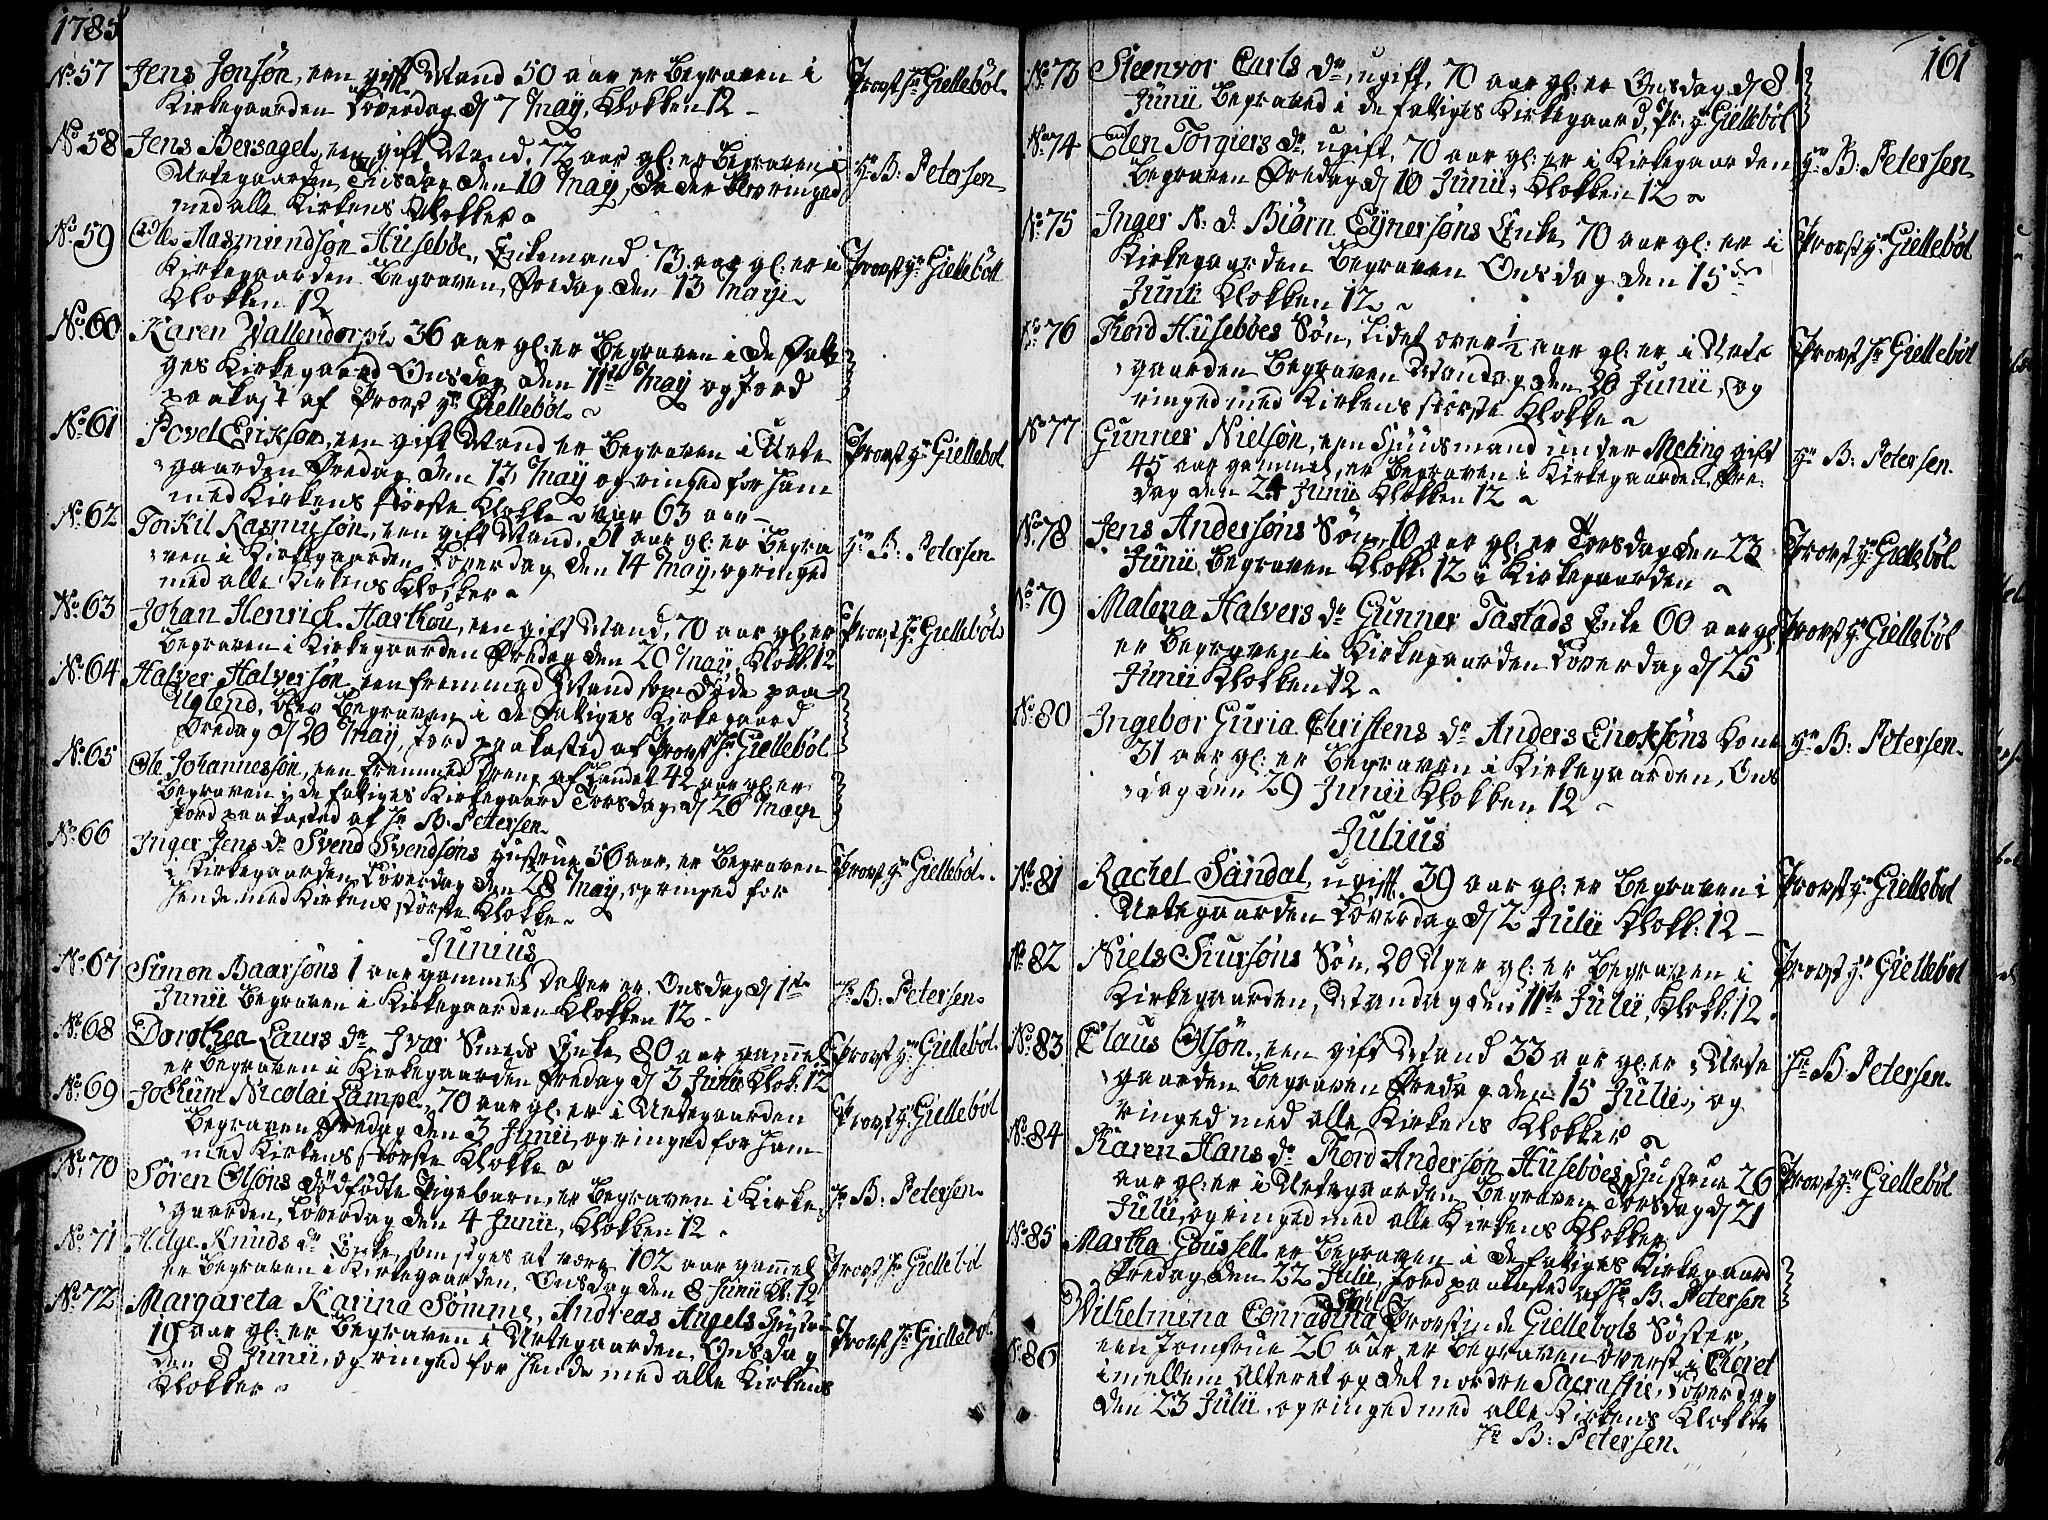 1785
No 57 Jens Jonsøn, een gift Mand 50 aar er Begraven i Provst Hr Giellebøl.
Kirkegaarden Løverdag d 7 May, Klokken 12 -
No 58 Jens Bersagel, een gift Mand, 72 aar gl: er Begraven i
Urtegaarden Tisdag den 10 May, da der blev ringed Hr B: Petersen
med alle Kirkens Klokker
No 59 Ole Aasmundsøn Husebøe, Enkemand 73 aar gl: er i Provst Hr Giellebøl
Kirkegaarden Begraven, Fredag den 13 May
Klokken 12
No 60 Karen Wallendorph 36 aar gl: er Begraven i de Fatti
ges Kirkegaard Onsdag den 11te May og Jord
paakast af Provst Hr Giellebøl
No 61 Povel Erikson, een gift Mand er Begraven i Urte Provst Hr Giellebøl
gaarden Fredag den 13 May og ringed for ham
med Kirkens største Klokke var 63 aar
No 62 Torkil Rasmusøn, een gift Mand, 51 aar gl: er Begra Hr B: Petersen
ven i Kirkegaarden Løverdag den 14 May, og ringed
med alle Kirkens Klokker
No 63 Johan Henrich Harthou, een gift Mand, 70 aar gl: er Provst Hr Giellebøl
Begraven i Kirkegaarden Fredag den 20 May Klokk: 12
No 64 Halver Halversøn een fremmed Mand som døde paa
Uglend, blev Begraven i de Fattiges Kirkegaard
Fredag d 20 May, Jord paakasted af Provst Hr Giellebøl
No 65 Ole Johannessøn, een fremmed Dreng af Landet 42 aar gl: er
Begraven i de fattiges Kirkegaard Torsdag d 26 May
Jord paakasted af Hr B: Petersen
No 66 Inger Jens dr Svend Svendsøns Hustrue 56 aar, er Begraven Provst Hr Giellebøl
i Kirkegaarden Løverdag den 28 May, og ringed for
hende med Kirkens største Klokke
Junius
No 67 Simon Baarsøns 1 aar gammel Datter er Onsdag d 1ste
Junii Begraven i Kirkegaarden Klokken 12 - Hr B: Petersen
No 68 Dorothea Laurs dr Ivar Smeds Enke, 80 aar gammel Provst Hr Giellebøl
er Begraven i Kirkegaarden Fredag d 3 Junii Klok: 12
No 69 Jochum Nicolai Lampe, 70 aar gl: er i Urtegaarden
Begraven Fredag den 3 Junii, og ringed for ham Provst Hr Giellebøl
med Kirkens største Klokke
No 70 Søren Olsøns dødfødte Pigebarn, er Begraven i Kirke Hr B: Petersen
gaarden, Løverdag den 4 Junii, Klokken 12 -
No 71 Helge Knuds dr Enke, som siges at være 102 aar gammel
er Begraven i Kirkegaarden, Onsdag den 8 Junii Kl: 12 Provst Hr Giellebøl
No 72 Margareta Karina Sømme, Andreas Angels
19 aar gl: er Begraven i Urtegaarden, Onsdag Provst Hr Giellebøl
den 8 Junii, og ringed for hende med alle Kirkens
Klokker
161
No 73 Steenvor Carls dr, ugift, 70 aar gl: er Onsdag d 8
Junii Begraved i de fattiges Kirkegaard, Pr. Hr Giellebøl
No 74 Elen Torgiers dr, ugift, 70 aar gl: er i Kirkegaarden Hr B: Petersen
Begraven Fredag d 10 Junii, Klokken 12
No 75 Inger N. d. Biørn Eynersøns Enke, 70 aar gl: er i Provst Hr Giellebøl
Kirkegaarden Begraven Onsdag den 15de
Junii Klokken 12
No 76 Tord Husebøes Søn, lidet over 1/2 aar gl: er i Urte Provst Hr Giellebøl
gaarden Begraven Mandag den 20 Junii, og
ringed med Kirkens største Klokke
No 77 Gunner Nielsøn, een Huusmand under Meling gift Hr B: Petersen.
45 aar gammel, er Begraven i Kirkegaarden Fre:
dag den 24 Junii Klokken 12
No 78 Jens Andersøns Søn 10 aar gl: er Torsdag den 23 Provst Hr Giellebøl
Junii Begraven Klokk: 12 i Kirkegaarden
No 79 Malena Halvers dr Gunner Tastads Enke 60 aar gl: Provst Hr Giellebøl
er Begraven i Kirkegaarden Løverdag d 25
Junii Klokken 12
No 80 Ingebor Guria Christens dr Anders Enoksøns Kone Hr B: Petersen.
31 aar gl: er Begraven i Kirkegaarden, Ons
dag den 29 Junii Klokken 12
Julius
No 81 Rachel Sandal, ugift, 39 aar gl: er Begraven i Provst Hr Giellebøl
Urtegaarden Løverdag d 2 Julii Klokk: 12 -
No 82 Niels Siursøns Søn, 20 Uger gl: er Begraven i Provst Hr Giellebøl
Kirkegaarden, Mandag den 11te Julii, Klokk: 12
No 83 Claus Olsøn, een gift Mand 33 aar gl: er i Urte Hr B: Petersen.
gaarden Begraven Fredag den 15 Julii, og
ringed med alle Kirkens Klokker
No 84 Karen Hans dr Tord Andersøn Husebøes Hustrue 26 Provst Hr Giellebøl
aar gl: er i Urtegaarden Begraven Torsdag d 21
Julii, og ringed med alle Kirkens Klokker
No 85 Martha Goussell er Begraven i de fattiges Kirkegaard
Fredag den 22 Julii, Jord paakasted af Hr B. Petersen
No 86 Wilhelmina Conradina Provstinde Giellebøls Søster,
een Jomfrue 26 aar, er Begraven øverst i Choret
imellem Alteret og det nordre Sacrastie, Løverdag
den 23 Julii, og ringed med alle Kirkens Klokker
Hr B: Petersen.